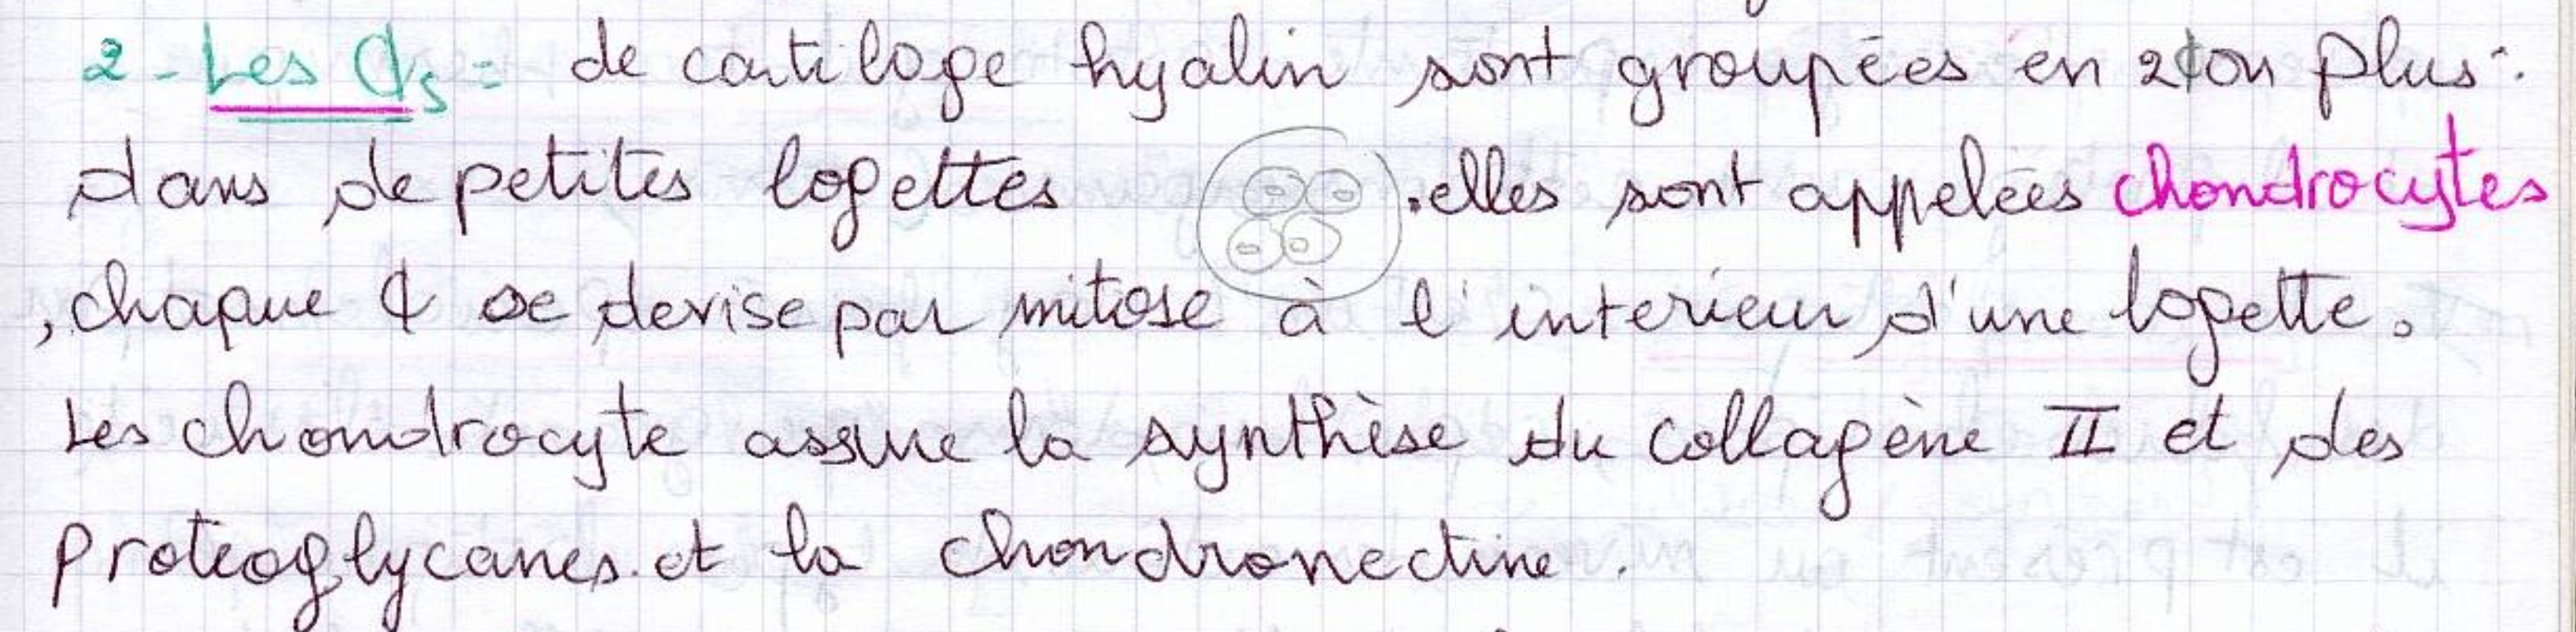 2 - Les ₵s = de cartilage hyalin sont groupées en 2 ou plus.
dans de petites logettes .elles sont appelées chondrocytes
, chaque ₵ se devise par mitose à l'interieur d'une logette.
Les chondrocyte assure la synthèse du collagène II et des
proteoglycanes. et la chondronectine.